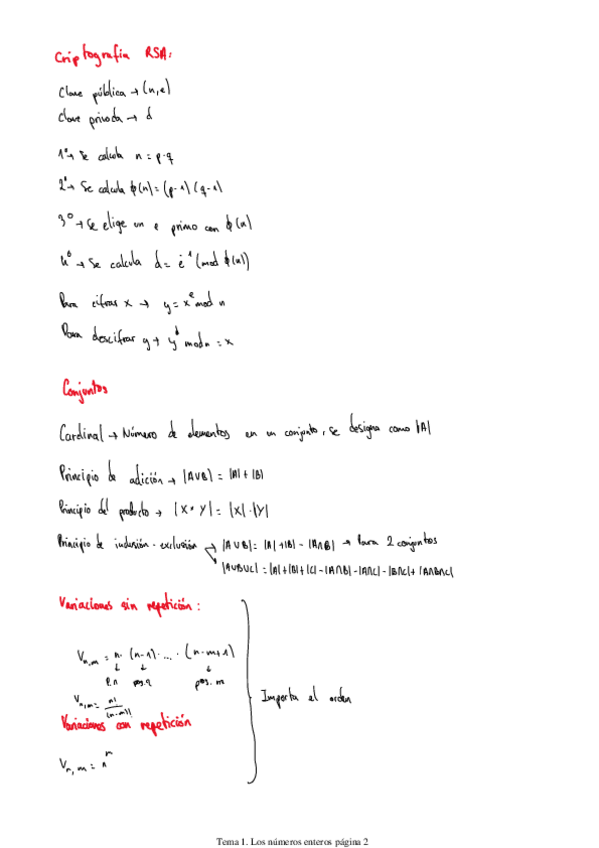 Criptografía RSA:
Clave pública → (n,e)
Clave privada → d
1º→ Se calcula n = p·q
2º→ Se calcula ϕ(n) = (p-1)(q-1)
3º→ Se elige un e primo con ϕ(n)
4º→ Se calcula d = e⁻¹ (mod ϕ(n))
Para cifrar x → y = xᵉ mod n
Para descifrar y → yᵈ mod n = x
Conjuntos
Cardinal → Número de elementos en un conjunto, se designa como |A|
Principio de adición → |A∪B| = |A| + |B|
Principio del producto → |X × Y| = |X|·|Y|
Principio de inclusión-exclusión → |A∪B| = |A| + |B| - |A∩B| → Para 2 conjuntos
|A∪B∪C| = |A| + |B| + |C| - |A∩B| - |A∩C| - |B∩C| + |A∩B∩C|
Variaciones sin repetición:
Vn,m = n · (n-1) · ... · (n-m+1)
↓ ↓ ↓
pos. m
Vn,m = n!/(n-m)!
Importa el orden
Variaciones con repetición
Vn,m = nᵐ
Tema 1. Los números enteros página 2